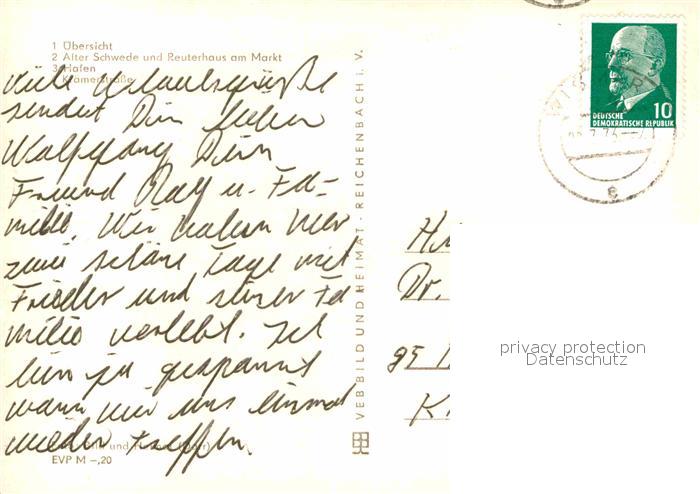 1 Übersicht
2 Alter Schwede und Reuterhaus am Markt
3 Hafen
Krämerstraße
Viele Urlaubsgrüße
sendet Dir lieber
Wolfgang Dein
Freund Ralf u. Fa-
milie. Wir haben hier
zwei schöne Tage mit
Frieder und seiner Fa
milie verlebt. Ich
bin ja gespannt
wann wir uns einmal
wieder treffen.
EVP M –,20
VEB BILD UND HEIMAT · REICHENBACH I. V.
WISMAR
10
DEUTSCHE
DEMOKRATISCHE REPUBLIK
e
Dr.
95
K
privacy protection
Datenschutz